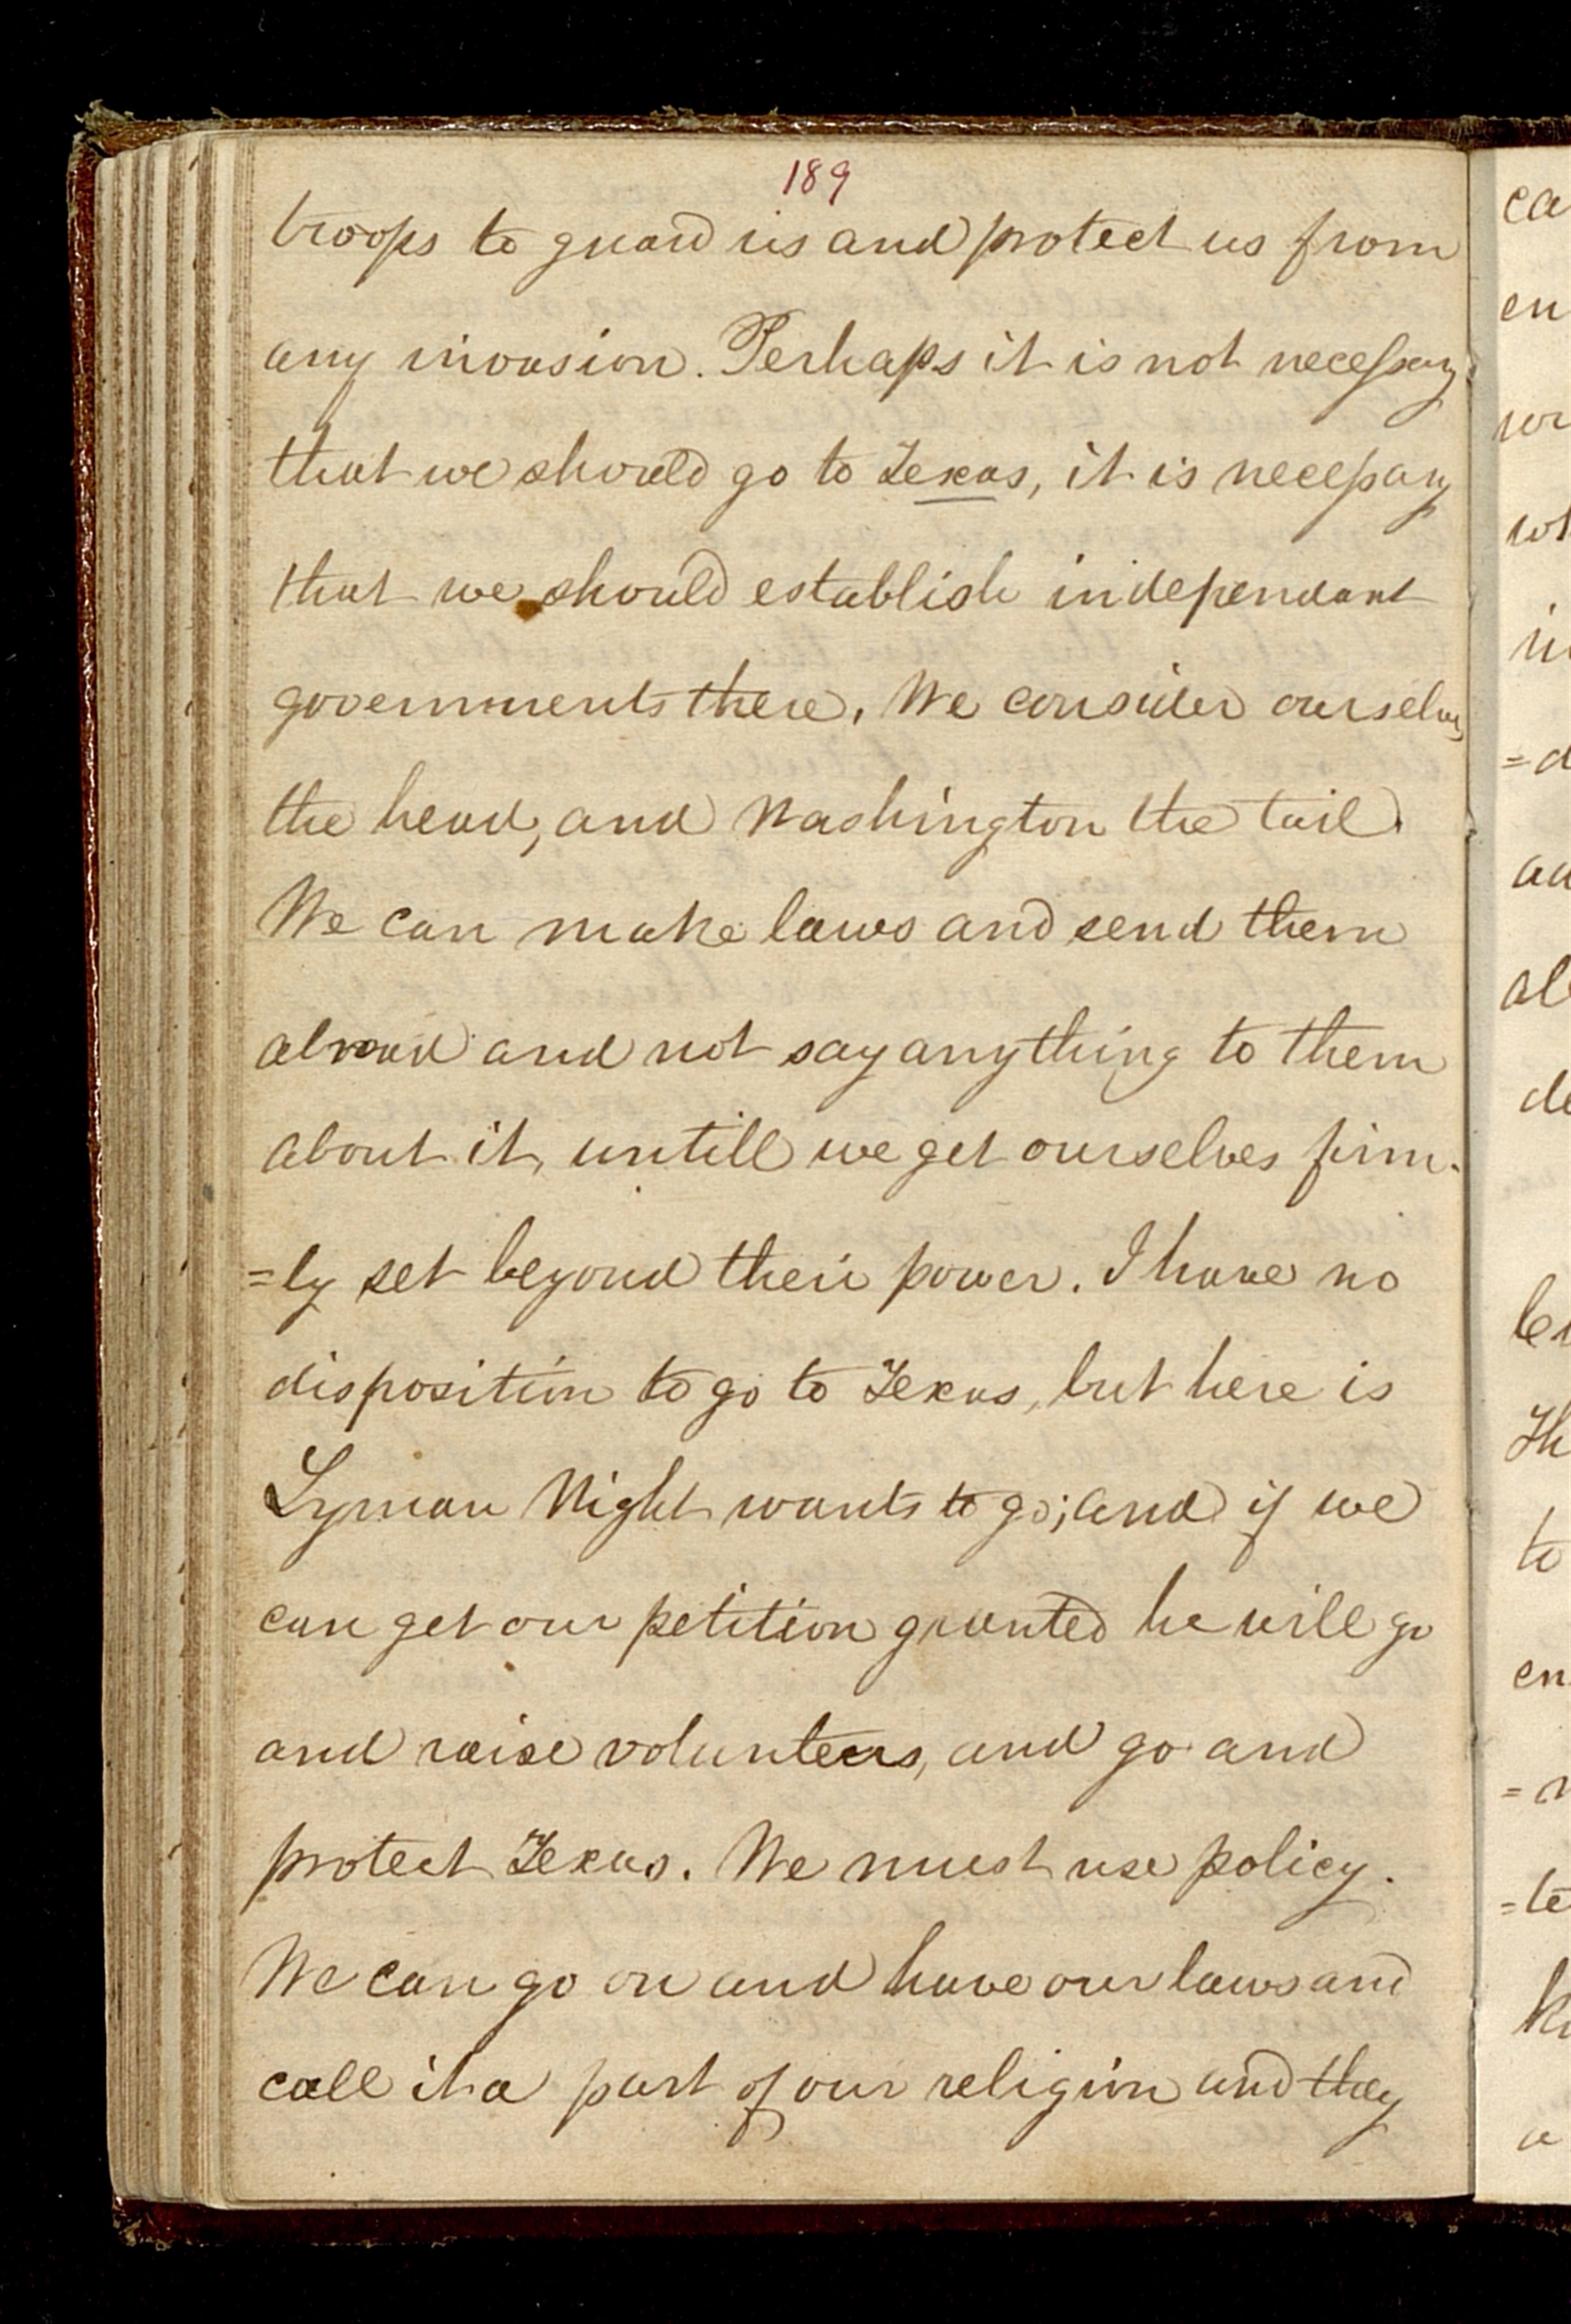 189
troops to guard us and protect us from
any invasion. Perhaps it is not necessary
that we should go to Texas, it is necessary
that we should establish independant
governments there. We consider ourselves
the head, and Washington the tail.
We can make laws and send them
abroad and not say anything to them
about it, untill we get ourselves firm-
=ly set beyond their power. I have no
disposition to go to Texas, but here is
Lyman Wight wants to go; and if we
can get our petition granted he will go
and raise volunteers, and go and
protect Texas. We must use policy.
We can go on and have our laws and
call it a part of our religion and they
ca
en
=d
al
de
Th
to
en
=te
a